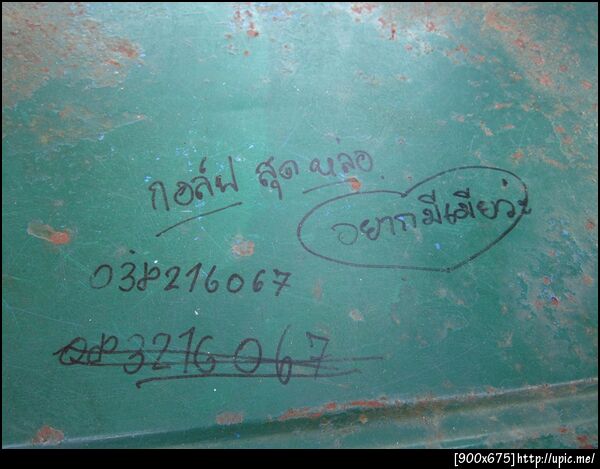 กอล์ฟ สุด หล่อ
อยากมีเมียว่ะ
038216067
083216067
[900x675]http://upic.me/